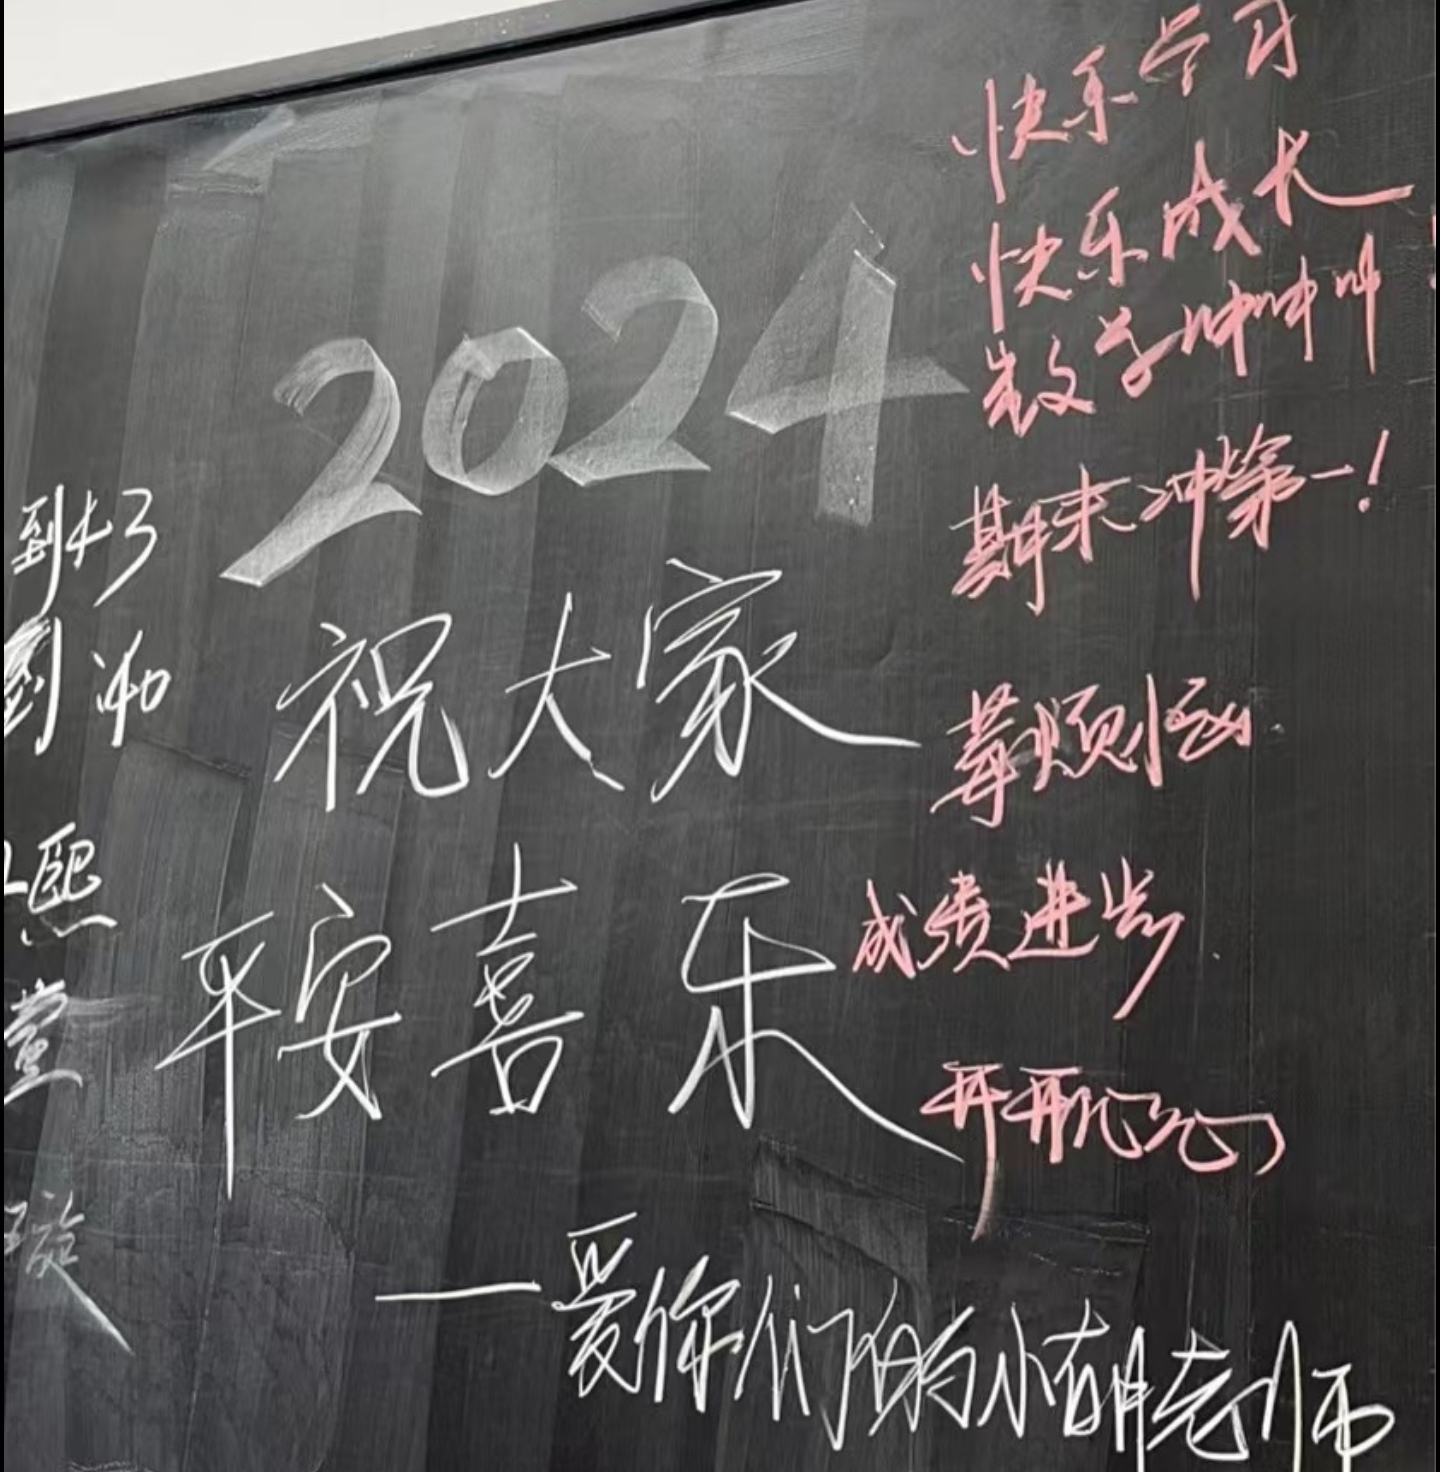 2024
祝大家
平安喜乐
——爱你们的小胡老师
快乐学习
快乐成长
数学冲冲冲
期末冲第一!
莫烦恼
成绩进步
开开心心
到
熙
萱
璇